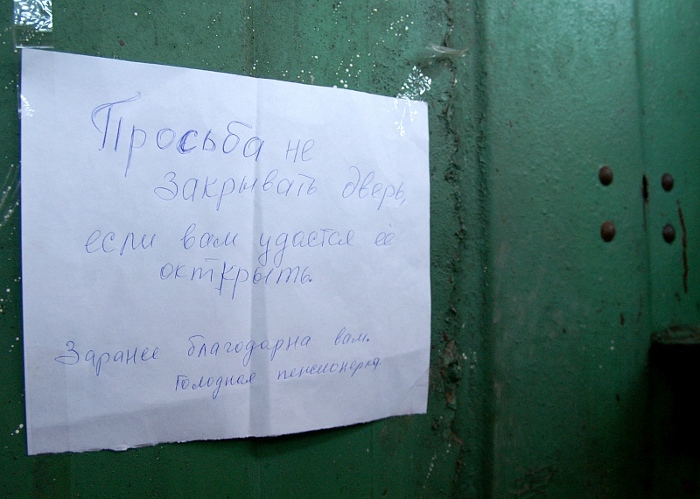 Просьба не
закрывать дверь,
если вам удастся её
октрыть.
Заранее благодарна вам.
Голодная пенсионерка.